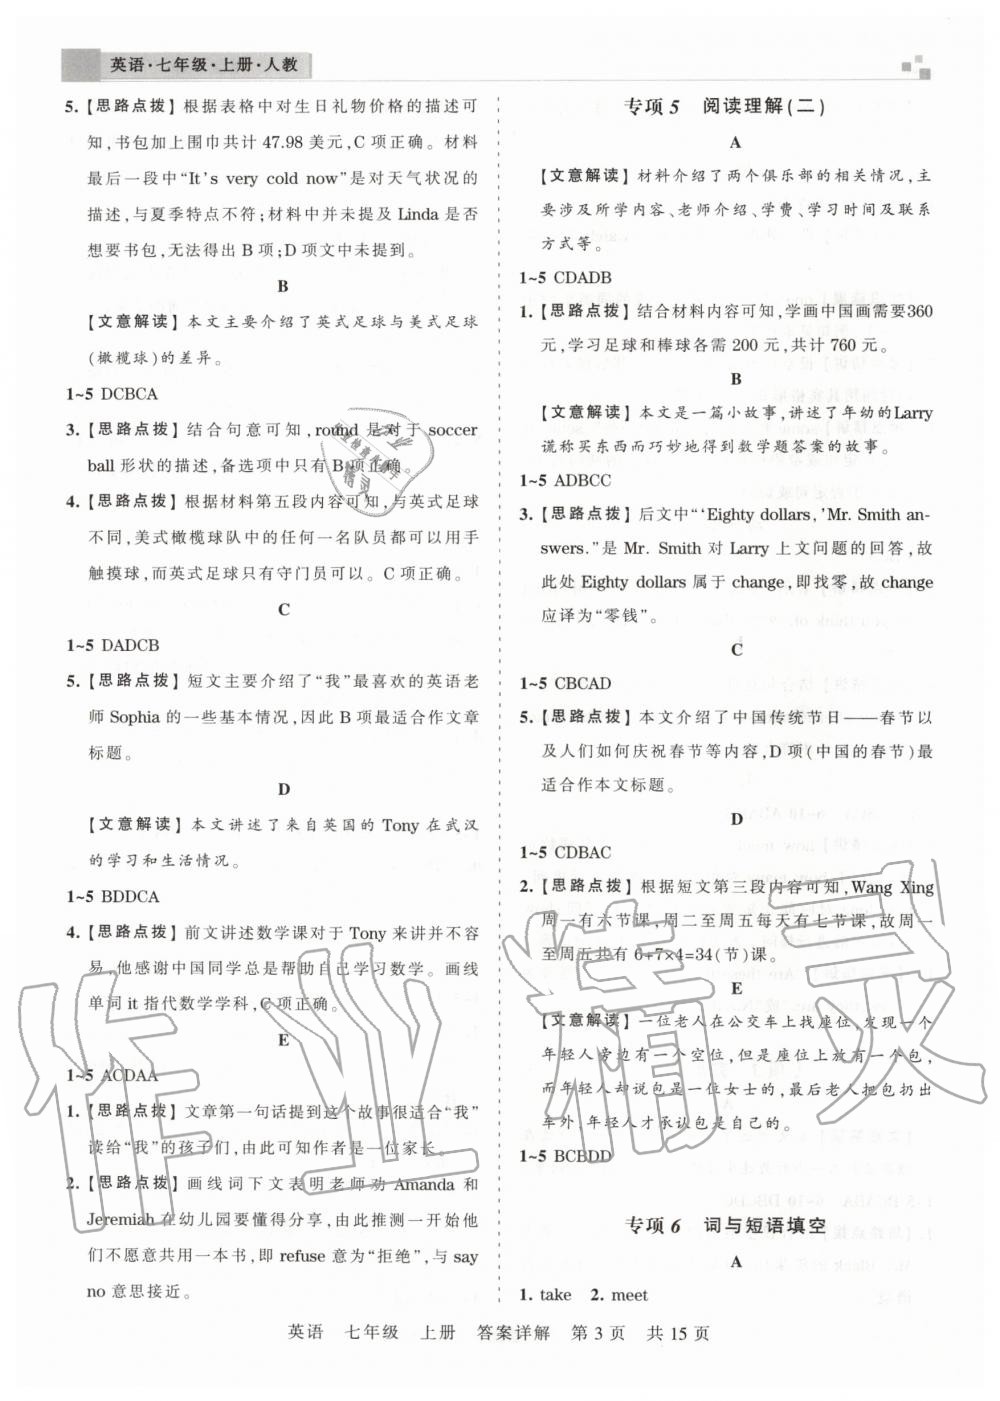 英语·七年级·上册·人教
5.【思路点拨】根据表格中对生日礼物价格的描述可
知,书包加上围巾共计 47.98 美元,C 项正确。材料
最后一段中“It's very cold now”是对天气状况的
描述,与夏季特点不符;材料中并未提及 Linda 是否
想要书包,无法得出 B 项;D 项文中未提到。
B
【文意解读】本文主要介绍了英式足球与美式足球
(橄榄球)的差异。
1~5 DCBCA
3.【思路点拨】结合句意可知,round 是对于 soccer
ball 形状的描述,备选项中只有 B 项正确。
4.【思路点拨】根据材料第五段内容可知,与英式足球
不同,美式橄榄球队中的任何一名队员都可以用手
触摸球,而英式足球只有守门员可以。C 项正确。
C
1~5 DADCB
5.【思路点拨】短文主要介绍了“我”最喜欢的英语老
师 Sophia 的一些基本情况,因此 B 项最适合作文章
标题。
D
【文意解读】本文讲述了来自英国的 Tony 在武汉
的学习和生活情况。
1~5 BDDCA
4.【思路点拨】前文讲述数学课对于 Tony 来讲并不容
易,他感谢中国同学总是帮助自己学习数学。画线
单词 it 指代数学学科,C 项正确。
E
1~5 ACDAA
1.【思路点拨】文章第一句话提到这个故事很适合“我”
读给“我”的孩子们,由此可知作者是一位家长。
2.【思路点拨】画线词下文表明老师劝 Amanda 和
Jeremiah 在幼儿园要懂得分享,由此推测一开始他
们不愿意共用一本书,即 refuse 意为“拒绝”,与 say
no 意思接近。
专项 5 阅读理解(二)
A
【文意解读】材料介绍了两个俱乐部的相关情况,主
要涉及所学内容、老师介绍、学费、学习时间及联系
方式等。
1~5 CDADB
1.【思路点拨】结合材料内容可知,学画中国画需要360
元,学习足球和棒球各需 200 元,共计 760 元。
B
【文意解读】本文是一篇小故事,讲述了年幼的Larry
谎称买东西而巧妙地得到数学题答案的故事。
1~5 ADBCC
3.【思路点拨】后文中“‘Eighty dollars,’Mr. Smith an-
swers.”是 Mr. Smith 对 Larry 上文问题的回答,故
此处 Eighty dollars 属于 change,即找零,故 change
应译为“零钱”。
C
1~5 CBCAD
5.【思路点拨】本文介绍了中国传统节日——春节以
及人们如何庆祝春节等内容,D 项(中国的春节)最
适合作本文标题。
D
1~5 CDBAC
2.【思路点拨】根据短文第三段内容可知,Wang Xing
周一有六节课,周二至周五每天有七节课,故周一
至周五共有 6+7×4=34(节)课。
E
【文意解读】一位老人在公交车上找座位,发现一个
年轻人旁边有一个空位,但是座位上放有一个包,
而年轻人却说包是一位女士的,最后老人把包扔出
车外,年轻人才承认包是自己的。
1~5 BCBDD
专项 6 词与短语填空
A
1. take 2. meet
英语 七年级 上册 答案详解 第 3 页 共 15 页
作业精灵